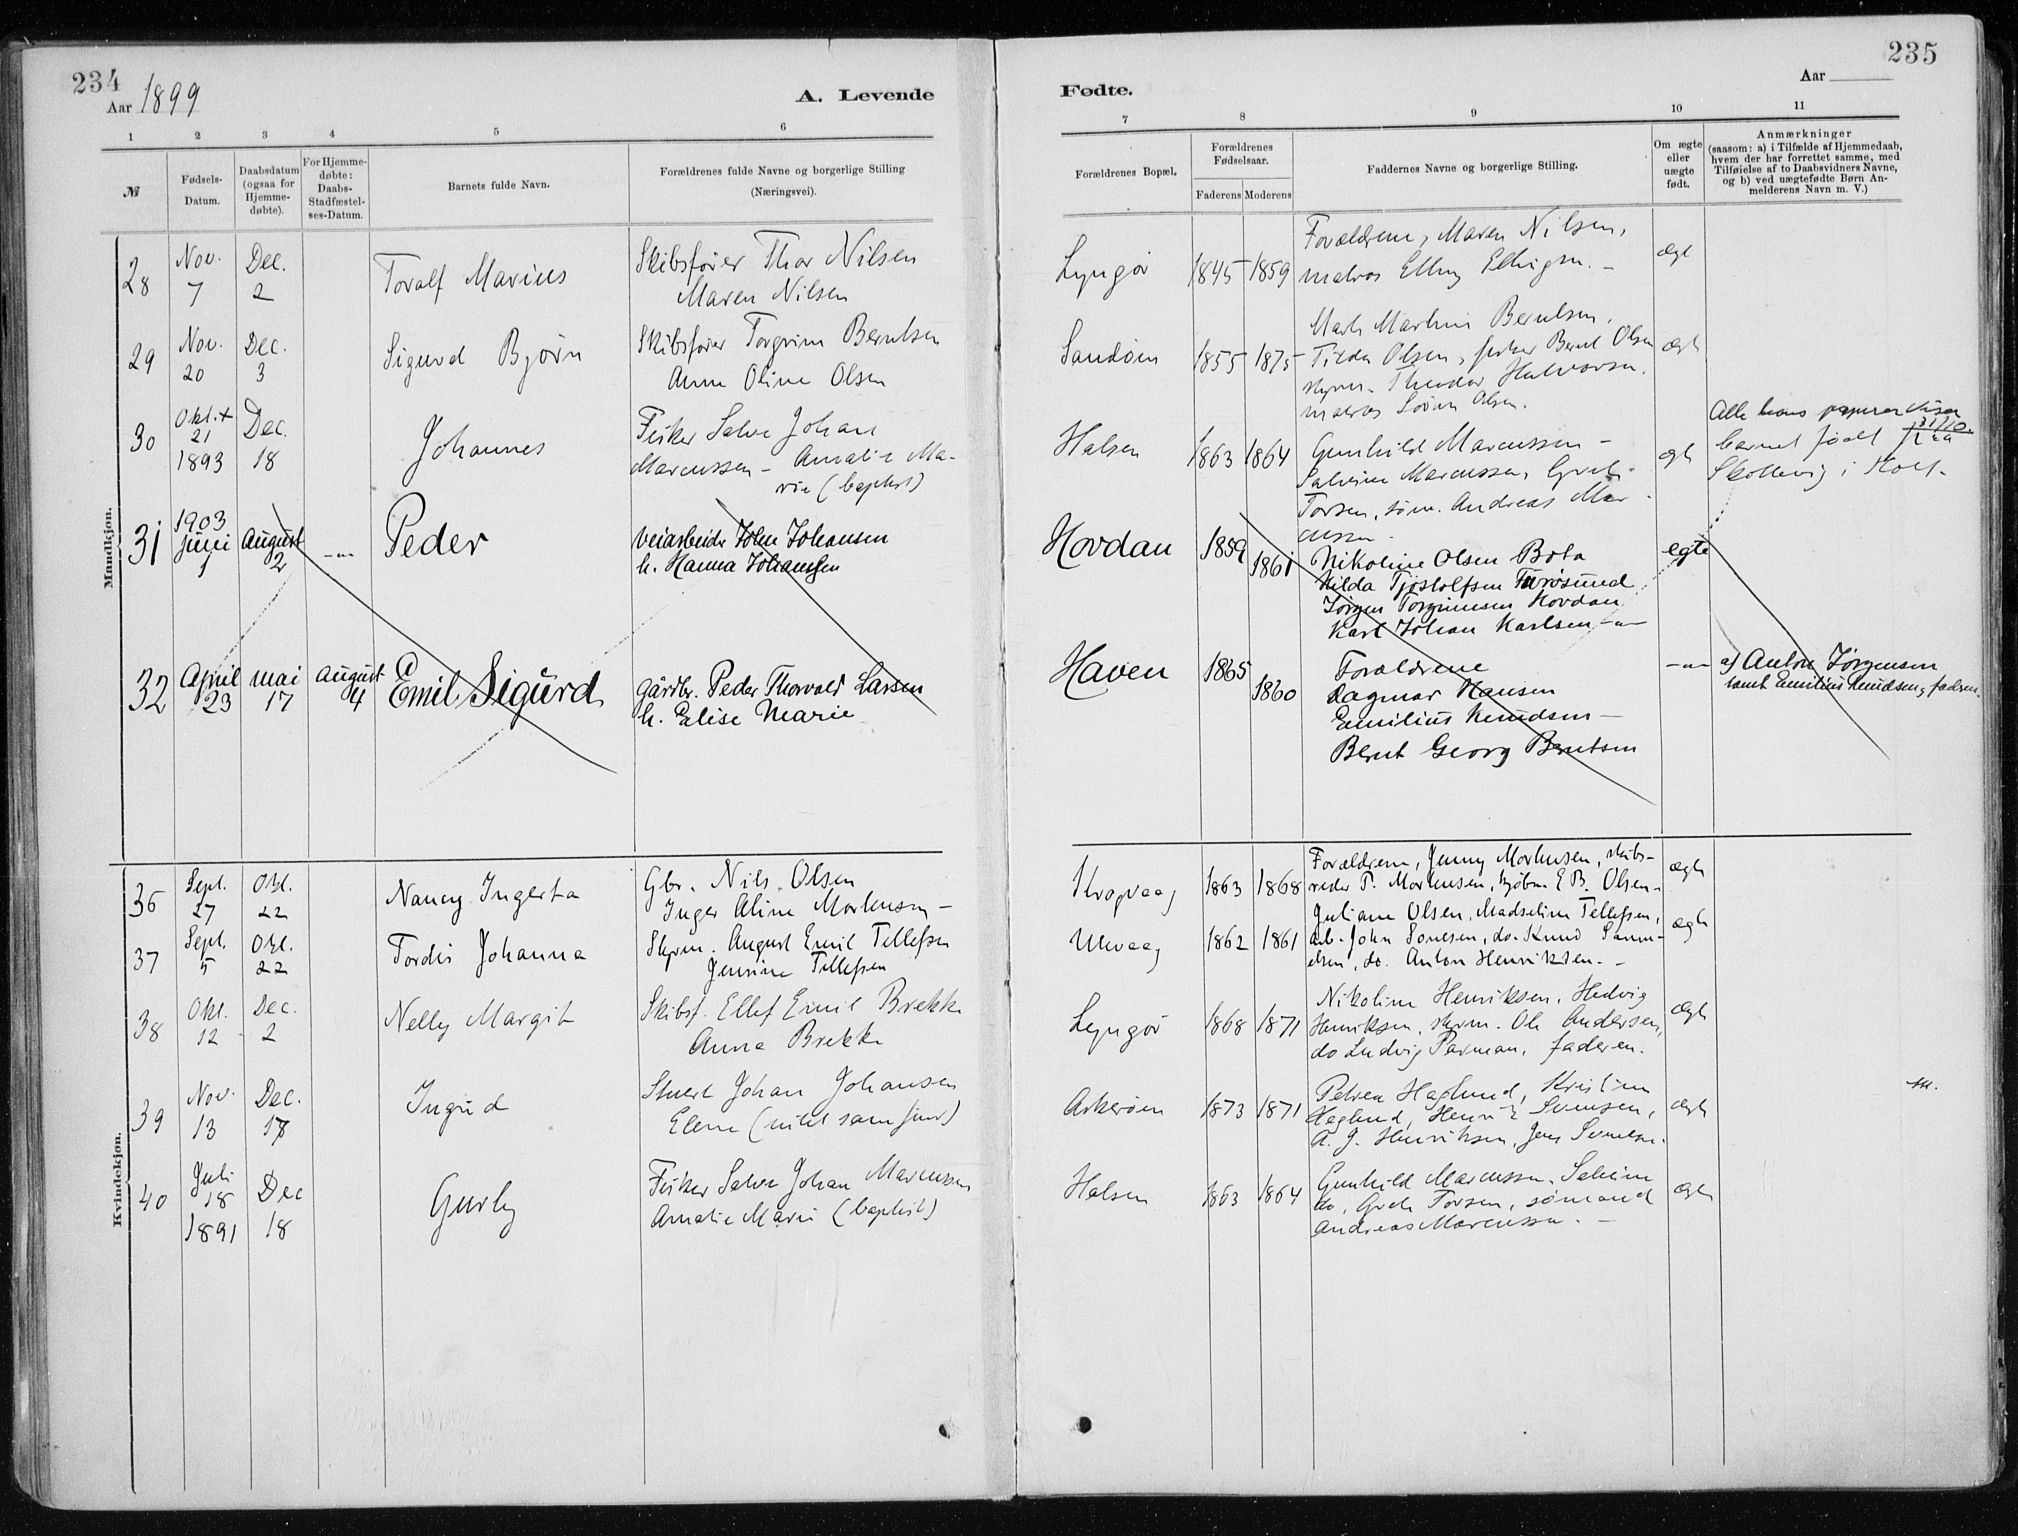 234
Aar 1899
A. Levende
1 2 3 4 5 6
№
Fødsels-Datum.
Daabsdatum (ogsaa for Hjemme-døbte).
For Hjemme-døbte: Daabs-Stadfæstel-ses-Datum.
Barnets fulde Navn.
Forældrenes fulde Navne og borgerlige Stilling
(Næringsvei).
Mandkjøn.
28 Nov. 7 Dec. 2 Toralf Marius
Skibsfører Thor Nilsen
Maren Nilsen
29 Nov. 20 Dec. 3 Sigurd Bjørn
Skibsfører Torgrim Berntsen
Anne Oline Olsen
30 Okt. + 21 1893 Dec. 18 Johannes
Fisker Salve Johan
Marcussen – Amalie Ma-
rie (baptist)
31 1903 Juni 1 August 2 -"- Peder
veiarbeider John Johansen
h. Hanna Johanssen
32 April 23 mai 17 August 4 Emil Sigurd
gårdbr. Peder Thorvald Larsen
h. Elise Marie
Kvindekjøn.
36 Sept. 27 Okt. 22 Nancy Ingerta
Gbr. Nils Olsen
Inger Aline Mortensen –
37 Sept. 5 Okt. 22 Tordis Johanna
Skprm. August Emil Tellefsen
Jensine Tellefsen
38 Okt. 12 Dec. 2 Nelly Margit
Skibsf. Ellef Emil Brekke
Anna Brekke
39 Nov. 13 Dec. 17 Ingrid
Stuert Johan Johansen
Elene
40 Juli 18 1891 Dec 18 Gurly
Fisker Salve Johan Marcussen
Amalie Marie (baptist)
235
Aar
Fødte.
7 8 9 10 11
Forældrenes Bopæl.
Forældrenes Fødselsaar.
Faderens Moderens
Faddernes Navne og borgerlige Stilling.
Om ægte eller uægte født.
Anmærkninger
(saasom: a) i Tilfælde af Hjemmedaab,
hvem der har forrettet samme, med
Tilføielse af to Daabsvidners Navne,
og b) ved uægtefødte Børn An-
melderens Navn m. V.)
Lyngør 1845 1859 ægt
Forældrene, Maren Nilsen,
matros
Sandøen 1855 1875 ægt
Berntsen,
Tilda Olsen, fisker Bernt Olsen
skprm. Theodor Halvorsen
matros Søren Olsen.
Halsen 1863 1864 egt
Gunhild Marcussen –
Salvine Marcussen, Grete
Torsen, søm. Andreas Mar-
cussen –
Alle hans papirer viser
barnet født 31/10.
i Holt.
Hovdan 1859 1861 egte
Nikoline Olsen Bota
Hilda Tjøstolfsen Furøsund
Jørgen Torgrimsen Hovdan
Karl Johan Karlsen -"-
Haven 1865 1860 -"-
Forældrene
Dagmar Hansen
Emilius Knudsen –
Bernt Georg Berntsen
a) Anton Jørgensen
samt Emilius Knudsen, fadren.
Krogvaag 1863 1868 ægte
Forældrene, Jenny Mortensen, skibs-
reder P. Mortensen, kjøbm. E B. Olsen –
Ulevaag 1862 1861 ægte
Juliane Olsen, Madseline Tellefsen,
arb. John Sonesen, do. Knud Samu-
elsen, do. Anton Henriksen. –
Lyngør 1868 1871 ægte
Nikoline Henriksen, Hedvig
Henriksen, skprm. Ole Andersen,
do Ludvig Parman, faderen.
Askerøen 1873 1871 ægte
Petrea Haglund, Kristine
Haglund, Henrik Svensen,
A. J. Henriksen, Jens Svendsen.
Halsen 1863 1864 ægte
Gunhild Marcussen, Salvine
do, Grete Torsen, sømand
Andreas Marcussen. –